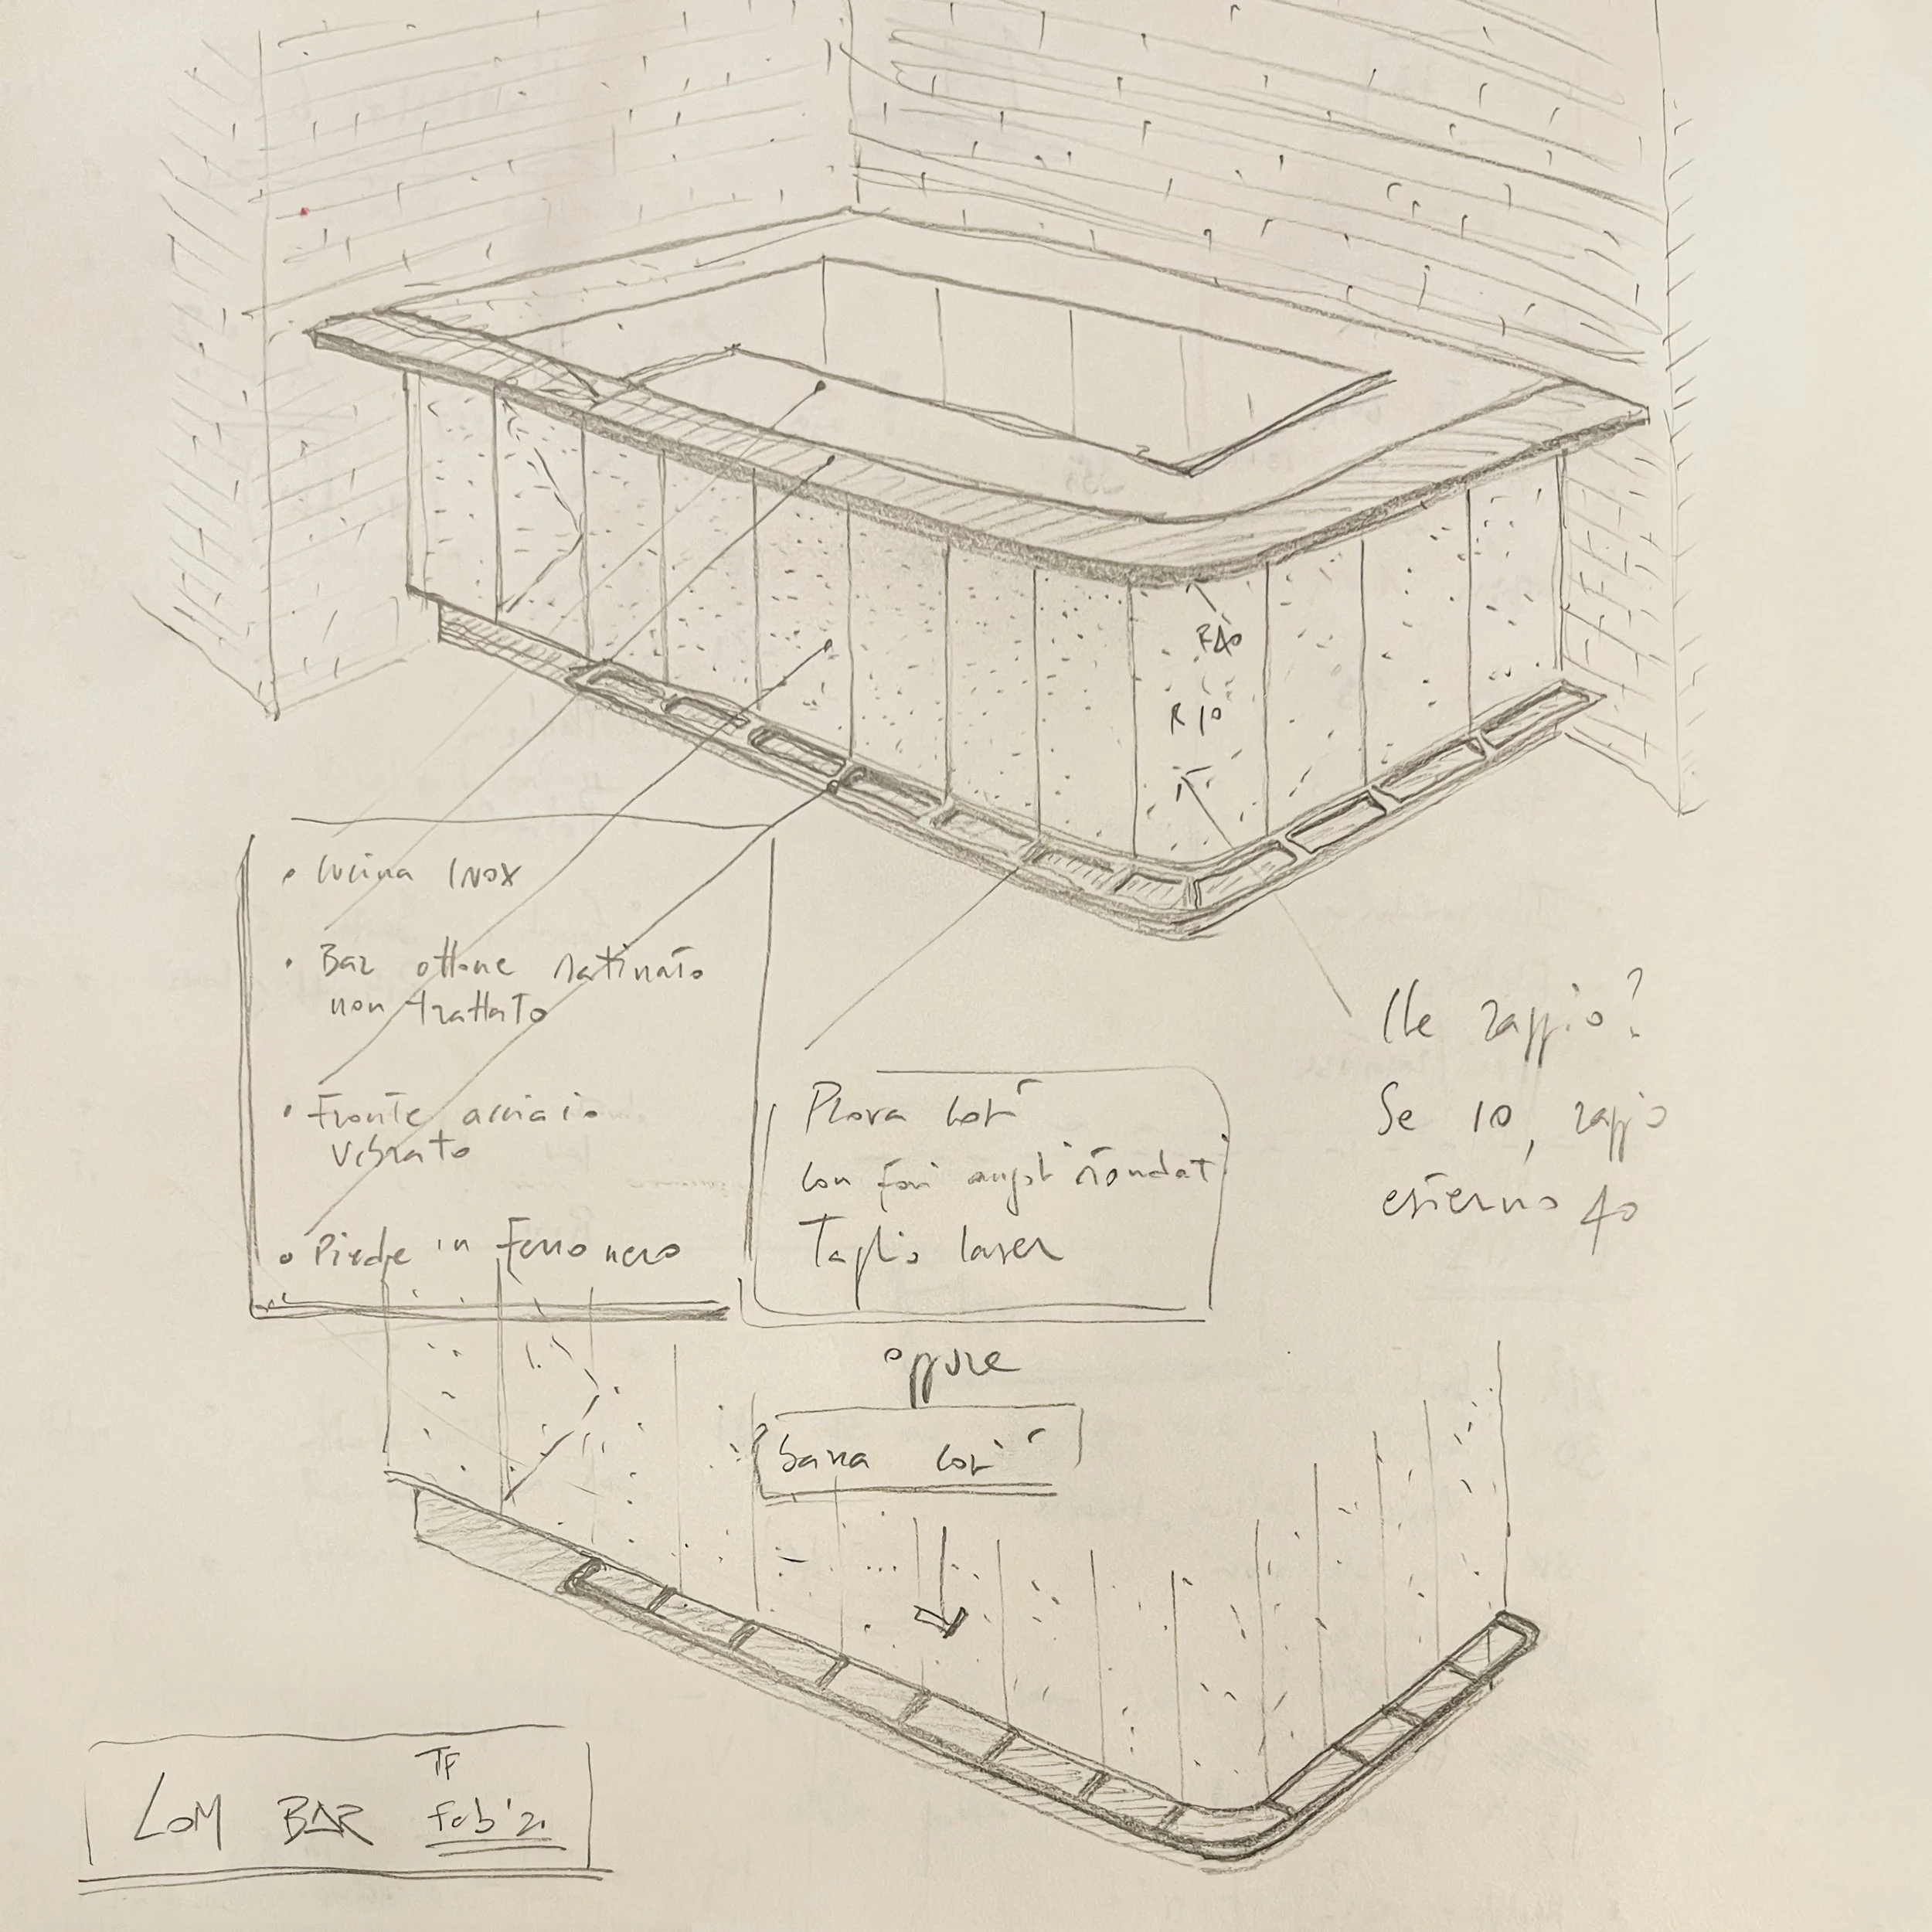 R40
R10
• Cucina INOX
• Bar ottone satinato
non trattato
• Fronte acciaio
vibrato
• Piede in ferro nero
Prova così
con fori angoli stondati
Taglio laser
Che raggio?
Se 10, raggio
esterno 40
oppure
così
LOM BAR
TF
Feb '21